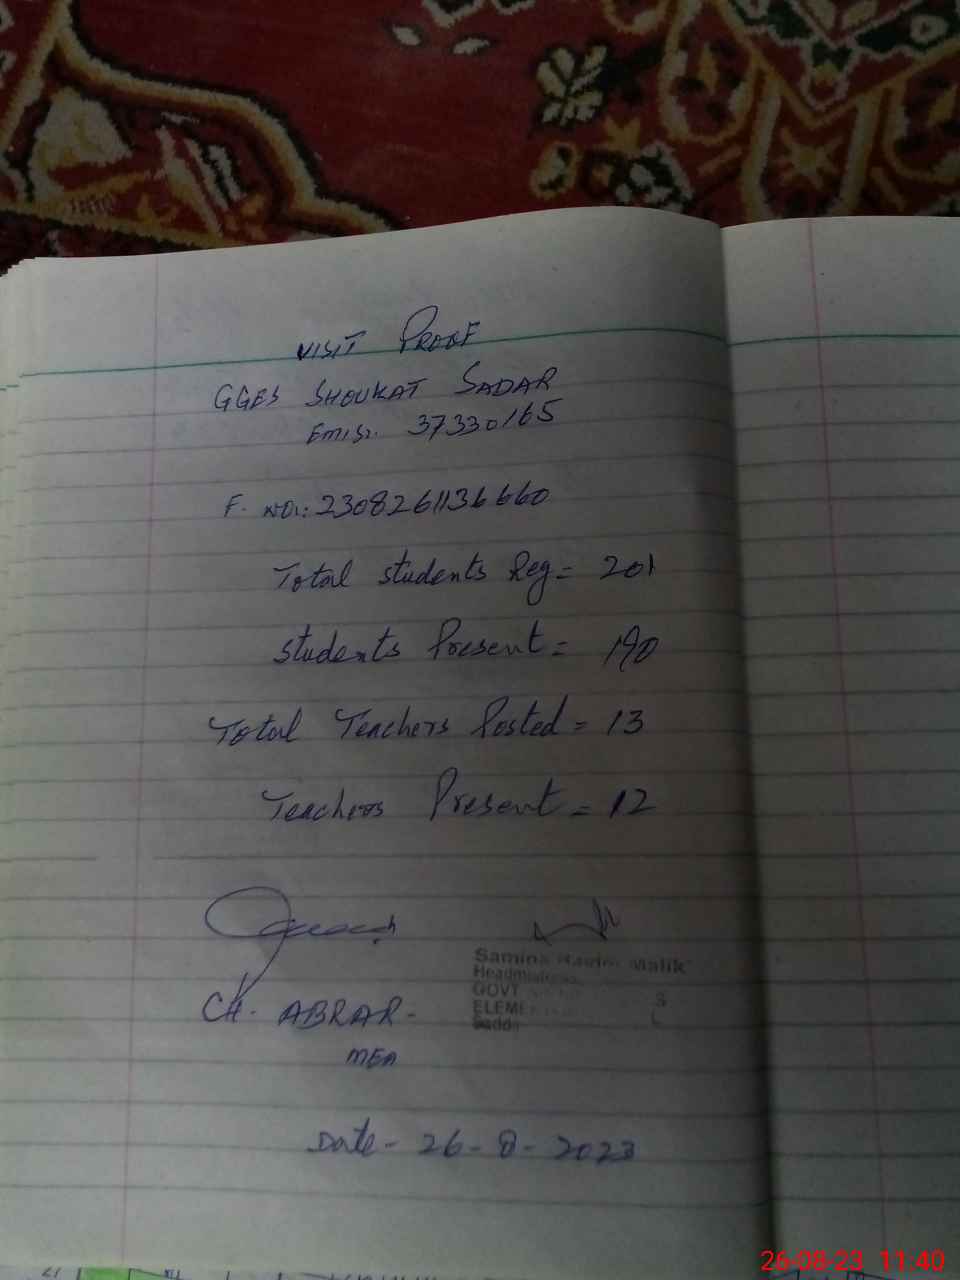 VISIT PROOF
GGES SHOUKAT SADAR
EMIS:. 37330165
F. NO:: 2308261136660
Total students Reg = 201
Students Present = 190
Total Teachers Posted = 13
Teachers Present = 12
Samina Malik
Headmistress
GOVT
S
CH. ABRAR.
MEA
Date - 26-8-2023
26-08-23 11:40